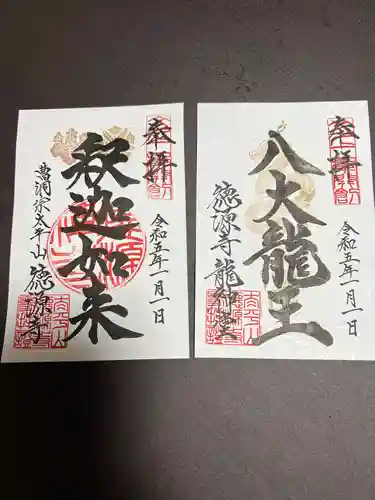 奉拝
令和五年一月一日
釈迦如来
曹洞宗太平山 徳源寺
奉拝
令和五年一月一日
八大龍王
徳源寺 龍神堂